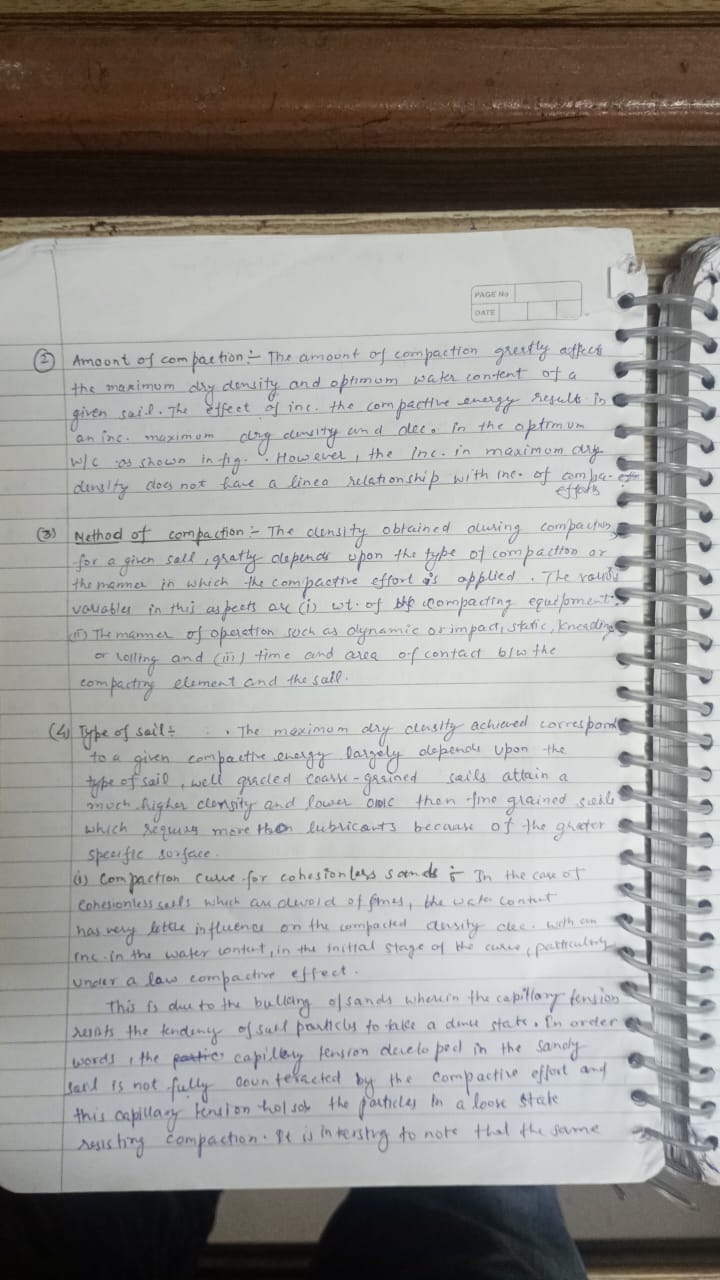 PAGE No
DATE
② Amount of compaction :- The amount of compaction greatly affects
the maximum dry density and optimum water content of a
given soil. The effect of inc. the compactive energy results in
an inc. maximum dry density and dec. in the optimum
w/c as shown in fig. . However, the inc. in maximum dry
density does not have a linea relationship with inc. of compa.
efforts
(3) Method of compaction :- The density obtained during compaction
for a given soil, gratly depends upon the type of compaction or
the manner in which the compactive effort is applied. The
variables in this aspects are (i) wt. of compacting equipment.
(ii) The manner of operation such as dynamic or impact, static, kneading
or rolling and (iii) time and area of contact b/w the
compacting element and the soil.
(4) Type of soil :- . The maximum dry density achieved correspond
to a given compactive energy largely depends upon the
type of soil, well graded coarse-grained soils attain a
much higher density and lower omc then fine grained soils
which requires more then lubricants because of the greater
specific surface.
(i) Compaction curve for cohesionless sands :- In the case of
cohesionless soils which are devoid of fines, the water content
has very little influence on the compacted density dec. with an
inc. in the water content, in the initial stage of the curve, particularly
under a low compactive effect.
This is due to the bulking of sands wherein the capillary tension
resists the tendeny of soil particles to take a dense state. In order
words, the capillary tension developed in the sandy
soil is not fully counteracted by the compactive effort and
this capillary tension the particles in a loose state
resisting compaction. It is interstig to note that the same